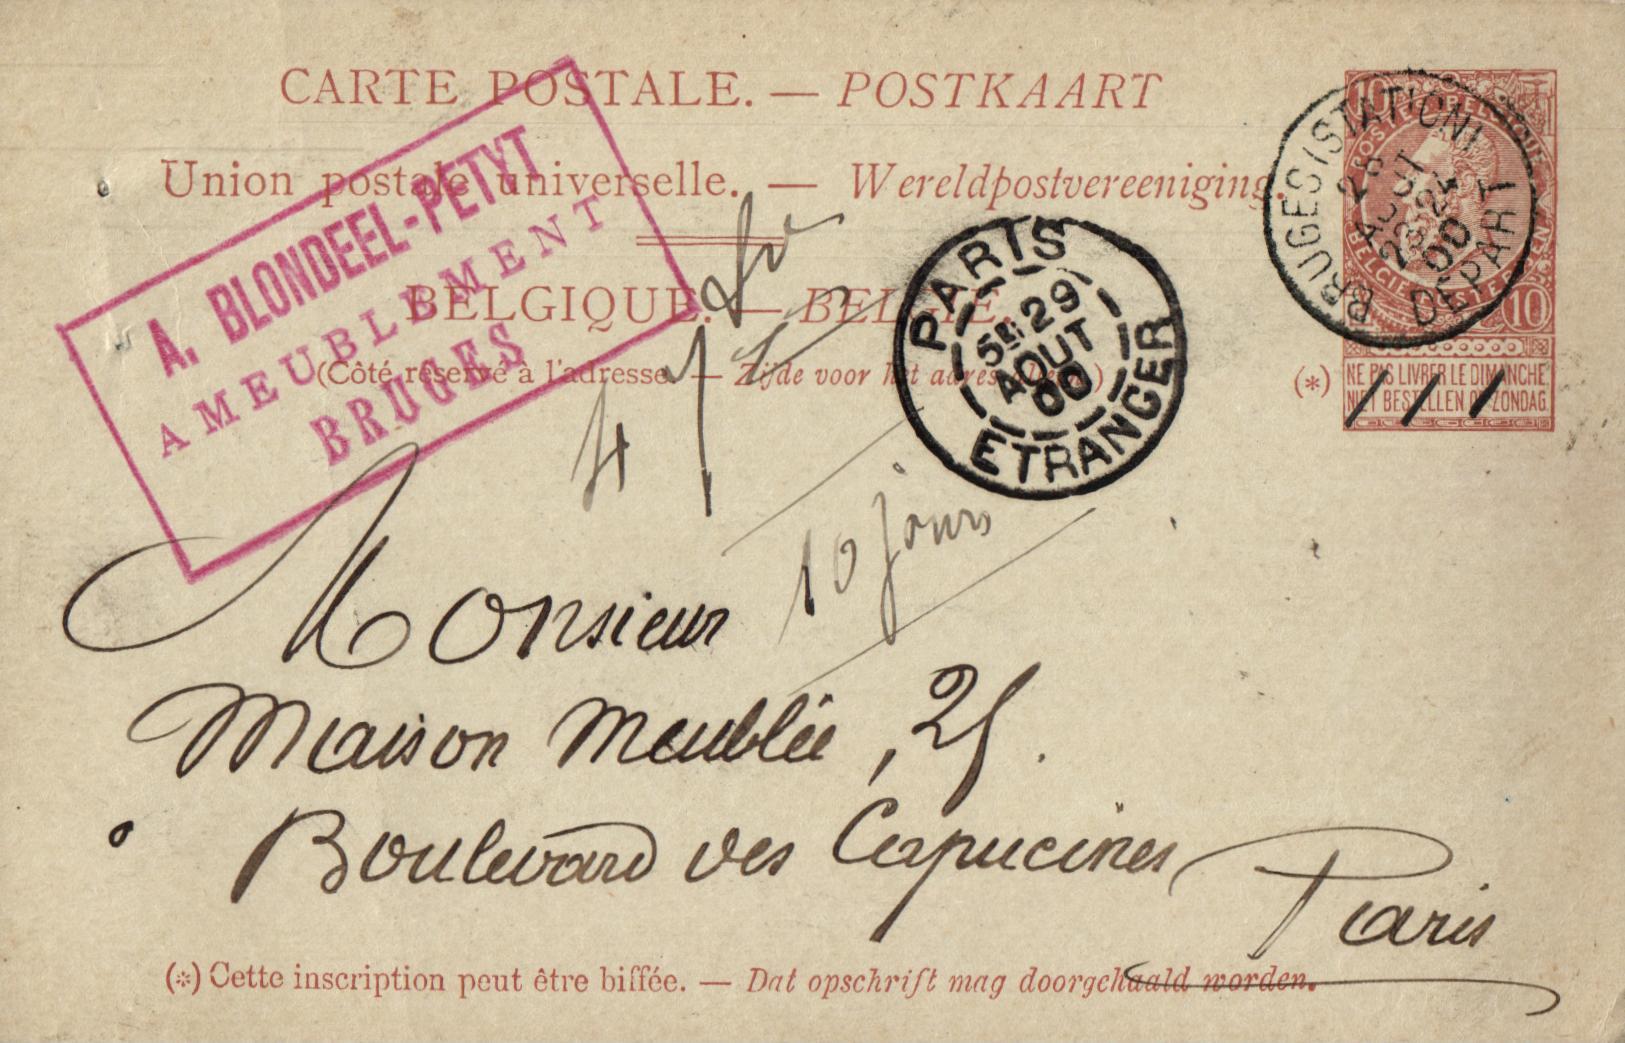 CARTE POSTALE. — POSTKAART
Union postale universelle. — Wereldpostvereeniging.
BELGIQUE. — BELGIE.
(Côté réservé à l'adresse. — Zijde voor het adres
A. BLONDEEL-PETYT
AMEUBLEMENT
BRUGES
10 BELGIQUE
BELGIE 10
NE PAS LIVRER LE DIMANCHE
NIET BESTELLEN OP ZONDAG.
(*)
BRUGES (STATION)
28
AOUT
23-24
00
DEPART
PARIS
5E 29
AOUT
00
ETRANGER
4
10 jours
Monsieur
Maison Meublée, 25.
Boulevard des Capucines
Paris
(*) Cette inscription peut être biffée. — Dat opschrift mag doorgehaald worden.